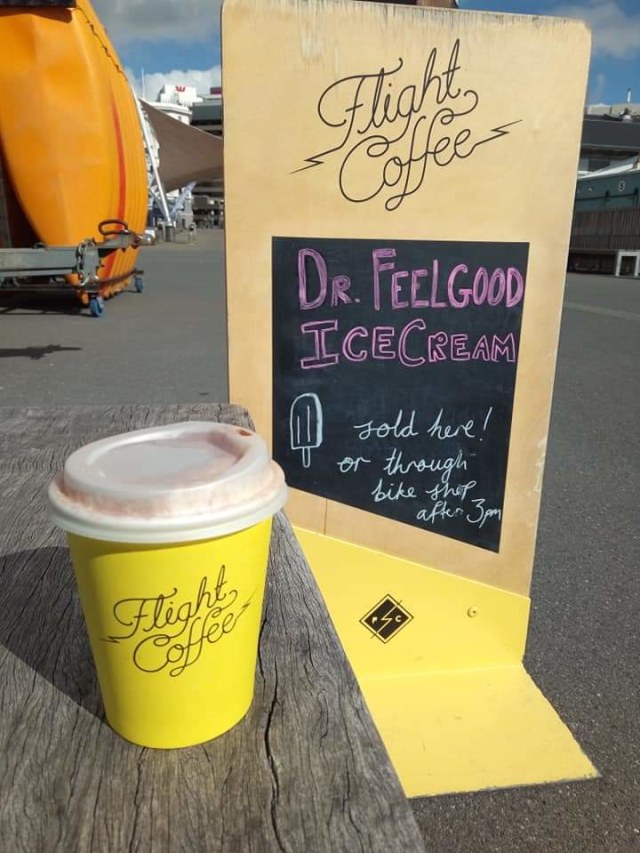 Flight
Coffee
DR. FEELGOOD
ICECREAM
sold here!
or through
bike shop
after 3pm
Flight
Coffee